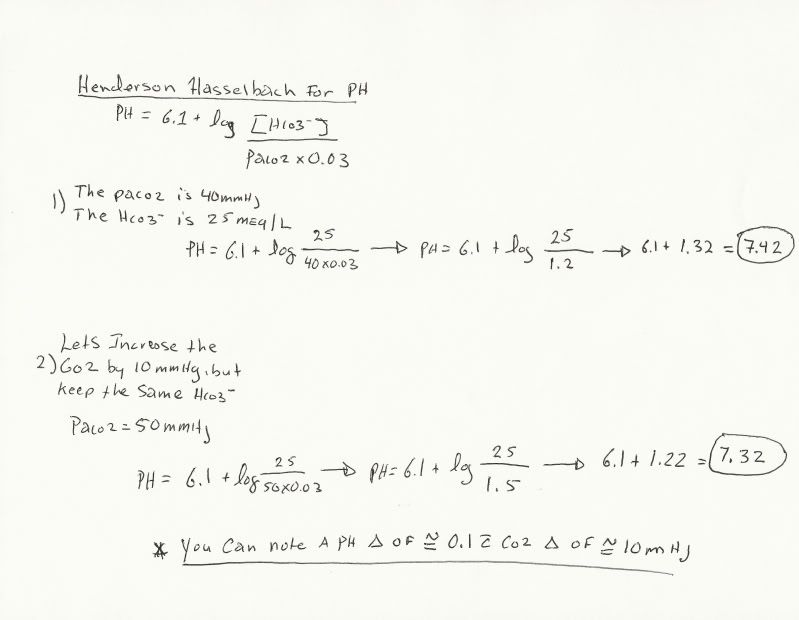 Henderson Hasselbach For PH
PH = 6.1 + log [HCO3-] / PaCO2 x 0.03
1) The paco2 is 40mmHg
The HCO3- is 25 mEq/L
PH = 6.1 + log 25 / 40x0.03 → PH = 6.1 + log 25 / 1.2 → 6.1 + 1.32 = 7.42
Lets Increase the
2) CO2 by 10 mmHg, but
Keep the Same HCO3-
PaCO2 = 50 mmHg
PH = 6.1 + log 25 / 50x0.03 → PH = 6.1 + log 25 / 1.5 → 6.1 + 1.22 = 7.32
* You Can note A PH Δ OF ≅ 0.1 c̄ CO2 Δ OF ≅ 10mmHg